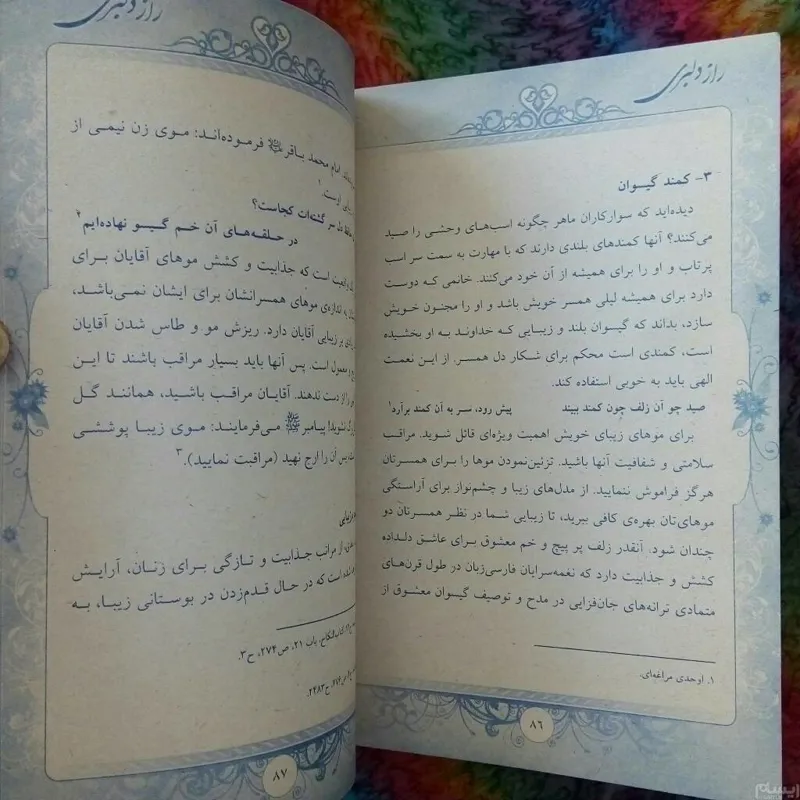 راز دلبری
۳- کمند گیسوان
دیده‌اید که سوارکاران ماهر چگونه اسب‌های وحشی را صید
می‌کنند؟ آنها کمندهای بلندی دارند که با مهارت به سمت سر اسب
پرتاب و او را برای همیشه از آن خود می‌کنند. خانمی که دوست
دارد برای همیشه لیلی همسر خویش باشد و او را مجنون خویش
سازد، بداند که گیسوان بلند و زیبایی که خداوند به او بخشیده
است، کمندی است محکم برای شکار دل همسر. از این نعمت
الهی باید به خوبی استفاده کند.
صید چو آن زلف چون کمند بیند پیش رود، سر به آن کمند برآرد۱
برای موهای زیبای خویش اهمیت ویژه‌ای قائل شوید. مراقب
سلامتی و شفافیت آنها باشید. تزئین‌نمودن موها را برای همسرتان
هرگز فراموش ننمایید. از مدل‌های زیبا و چشم‌نواز برای آراستگی
موهای‌تان بهره‌ی کافی ببرید، تا زیبایی شما در نظر همسرتان دو
چندان شود. آنقدر زلف پر پیچ و خم معشوق برای عاشق دلداده
کشش و جذابیت دارد که نغمه‌سرایان فارسی‌زبان در طول قرن‌های
متمادی ترانه‌های جان‌فزایی در مدح و توصیف گیسوان معشوق از
۱. اوحدی مراغه‌ای.
۸۶
راز دلبری
امام محمد باقر فرموده‌اند: موی زن نیمی از
اوست.۱
سر گشته‌ات کجاست؟
در حلقه‌های آن خم گیو نهاده‌ایم۲
واقعیت است که جذابیت و کشش موهای آقایان برای
به اندازه‌ی موهای همسرانشان برای ایشان نمی‌باشد،
بر زیبایی آقایان دارد. ریزش مو و طاس شدن آقایان
و معمول است. پس آنها باید بسیار مراقب باشند تا این
را از دست ندهند. آقایان مراقب باشید، همانند گل
نشوید! پیامبر ﷺ می‌فرمایند: موی زیبا پوششی
پس آن را ارج نهید (مراقبت نمایید).۳
از مراتب جذابیت و تازگی برای زنان، آرایش
است که در حال قدم‌زدن در بوستانی زیبا، به
کتاب‌النکاح، باب ۲۱، ص۲۷۴، ح۳.
ح۲۴۸۳.
۸۷
ایسام